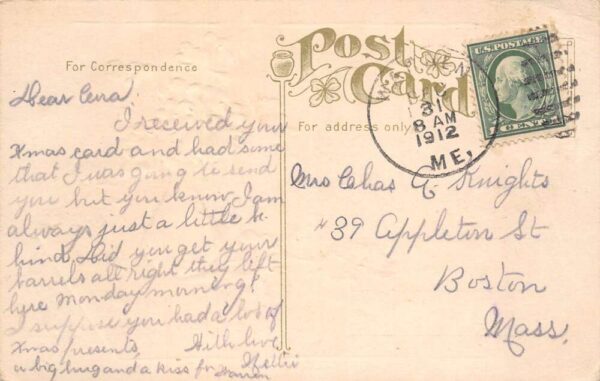 Post
Card
For Correspondence
For address only
U.S. POSTAGE
CENT
31
8 AM
1912
ME,
Dear Cora.
I received your
Xmas card and had some
that I was going to send
you but you know I am
always just a little be-
hind. Did you get your
barrels all right they left
here Monday morning?
I suppose you had a lot of
Xmas presents.
With love
Nettie
a big hug and a kiss for Warren
Mrs Chas A. Knights
39 Appleton St
Boston
Mass.